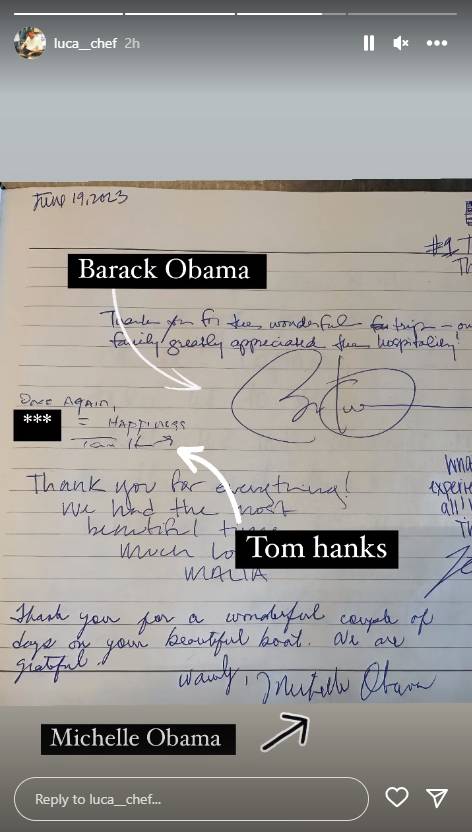 luca__chef 2h
June 19, 2023
#1 T
Th
Barack Obama
Thank you for the wonderful trip — ou
family greatly appreciated the hospitality!
Once Again,
*** = HAPPINESS
Tom H
Thank you for everything!
We had the most
beautiful
Much Lo
MALIA
Tom hanks
experie
all!
Th
Thank you for a wonderful couple of
days on your beautiful boat. We are
grateful.
Warmly, Michelle Obama
Michelle Obama
Reply to luca__chef...